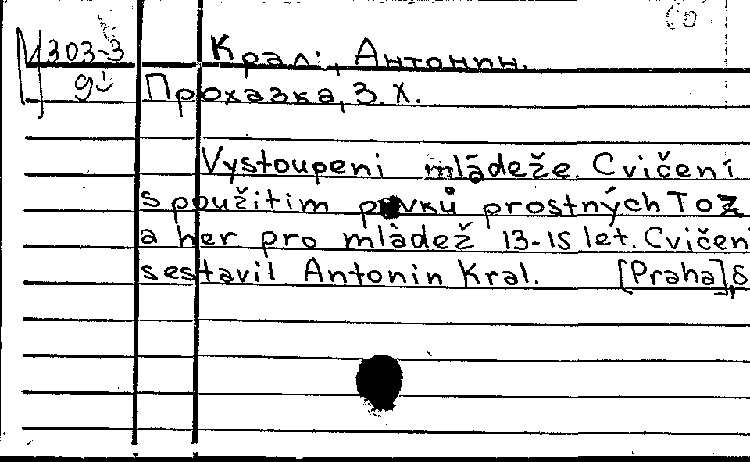 303-3 Крал, Антонин.
Прохазка, З. Х.
Vystoupeni mládeže. Cvičení
s použitim prvků prostných TOZ
a her pro mládež 13-15 let. Cvičen
sestavil Antonin Kral. [Praha],